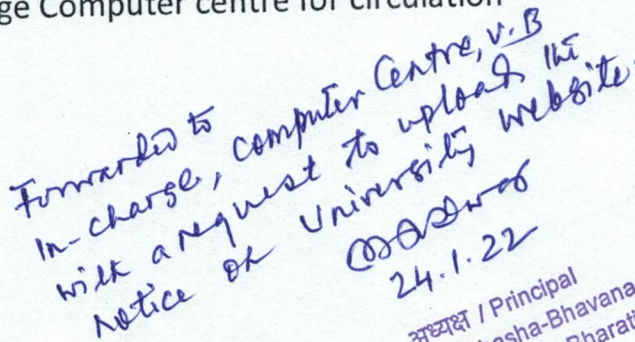 ge Computer centre for circulation
Forwarded to
In-charge, computer Centre, V.B
with a request to upload the
notice on University website.
24.1.22
अध्यक्ष / Principal
asha-Bhavana
Bharati